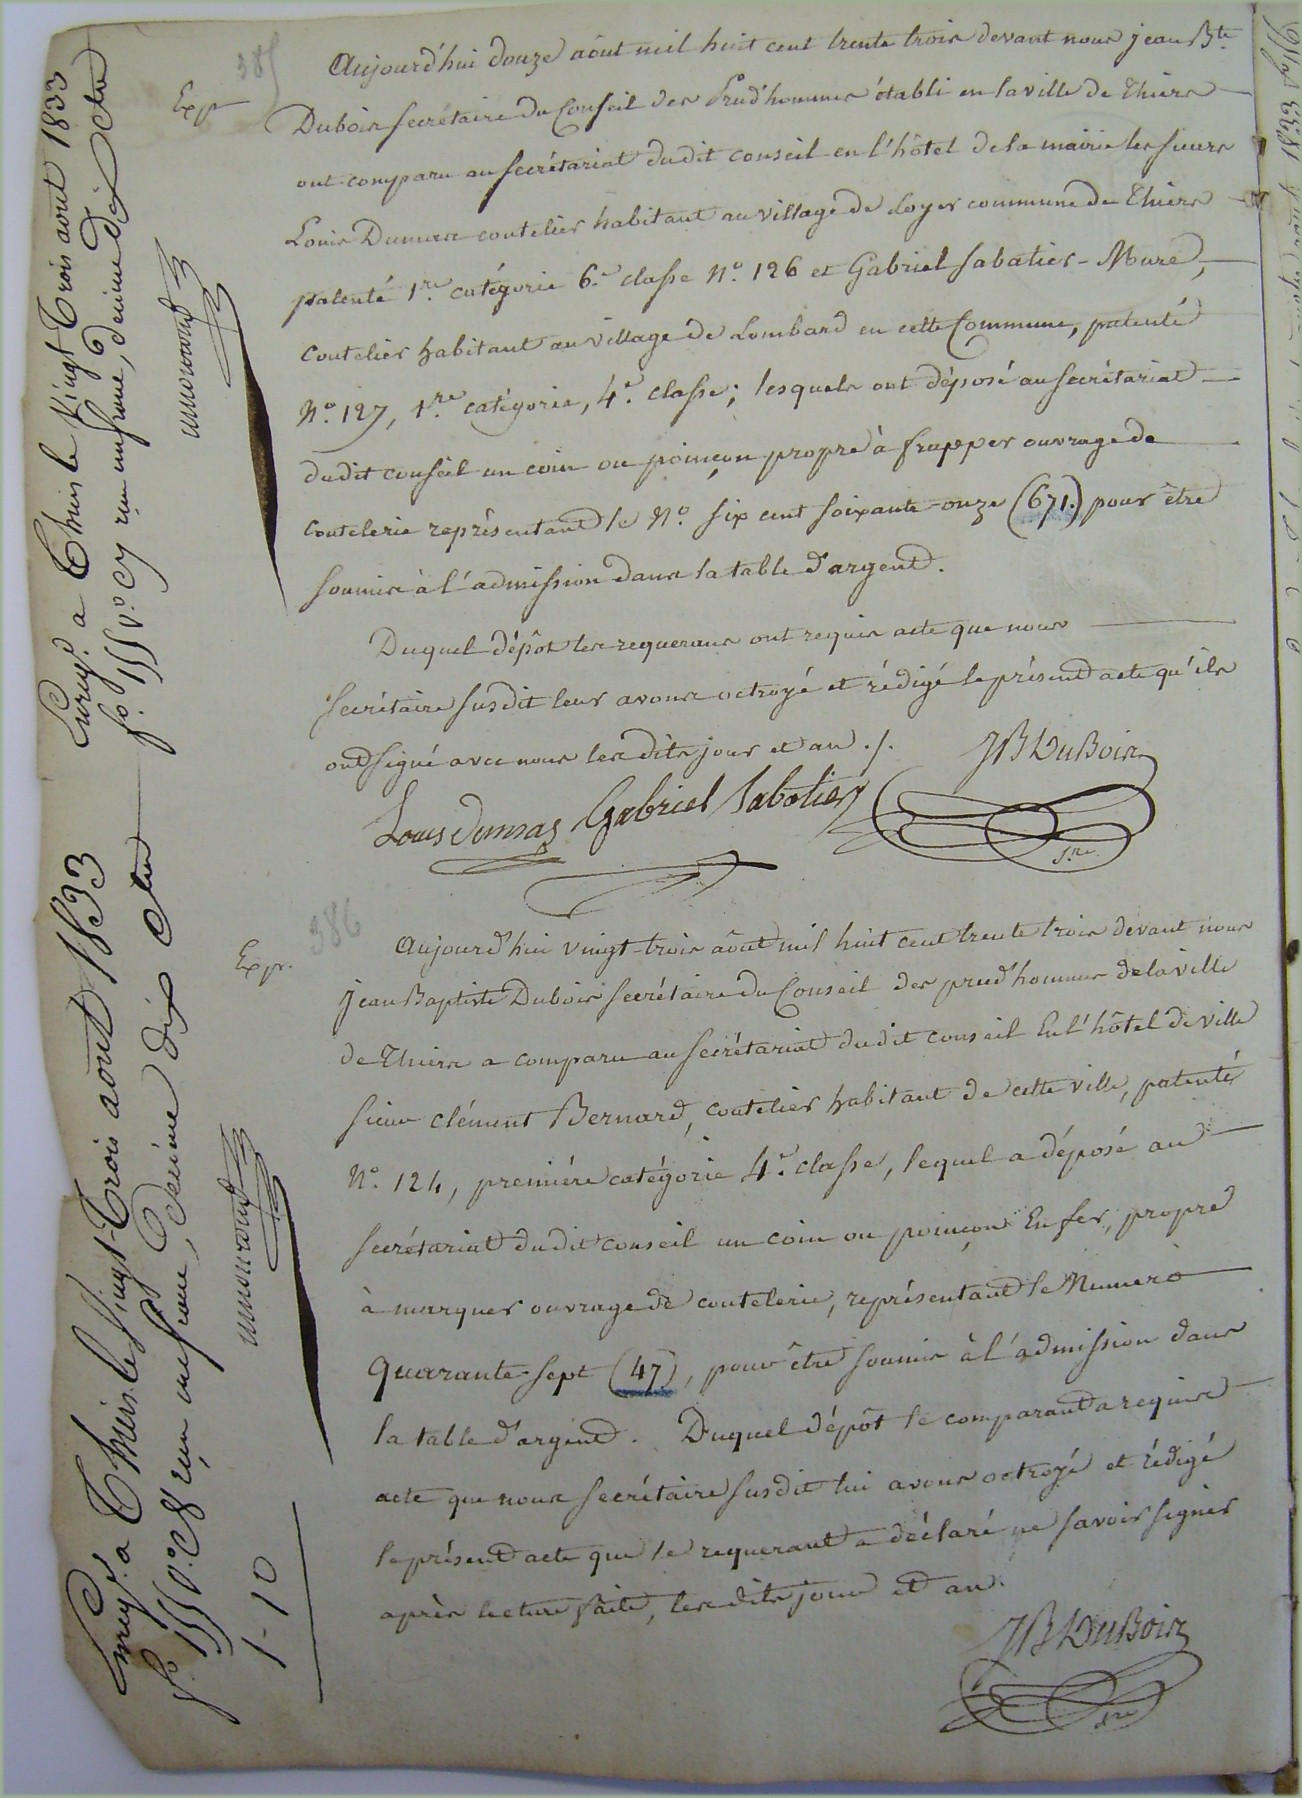 385
Exp.
Aujourd'hui douze aôut mil huit cent trente trois devant nous jean Bte
Dubois secrétaire du Conseil des Prud'hommes établi en la ville de Thiers
ont comparu au secrétariat dudit conseil en l'hôtel de la mairie les sieurs
Louis Dumas coutelier habitant au village de Loyer commune de Thiers
patenté 1re. catégorie 6e. classe No. 126 et Gabriel Sabatier-Mure,
coutelier habitant au village de Lombard en cette Commune, patenté
No. 127, 1.re catégorie, 4e. classe; lesquels ont déposé au secrétariat
dudit conseil un coin ou poinçon propre à frapper ouvrage de
coutelerie représentant le No. six cent soixante-onze (671.) pour être
soumis à l'admission dans la table d'argent.
Duquel dépôt les requerans ont requis acte que nous
secrétaire susdit leur avons octroyé et rédigé le présent acte qu'ils
ont signé avec nous les dits jour et an ./.
JB DuBois
Louis dumas Gabriel Sabatier
S.re
Enreg. a Thiers le Vingt Trois aout 1833
fo. 155 Vo. C7 reçu un franc, decime dix c
386
Exp.
Aujourd'hui vingt-trois aôut mil huit cent trente trois devant nous
jean Baptiste Dubois secrétaire du Conseil des prud'hommes de la ville
de Thiers a comparu au secrétariat dudit conseil En l'hôtel de ville
sieur Clément Bernard, coutelier habitant de cette ville, patenté
No. 124, première catégorie 4e. classe, lequel a déposé au
secrétariat dudit conseil un coin ou poinçon En fer, propre
à marquer ouvrage de coutelerie, représentant le Numero
quarante-sept (47), pour être soumis à l'admission dans
la table d'argent. Duquel dépôt le comparant a requis
acte que nous secrétaire susdit lui avons octroyé et rédigé
le présent acte que le requerant a déclaré ne savoir signer
après lecture faite, les dits jour et an.
JB DuBois
S.re
Enreg. a Thiers le Vingt-Trois aout 1833
fo. 155 Vo. C8 reçu un franc, decime dix c
1-10